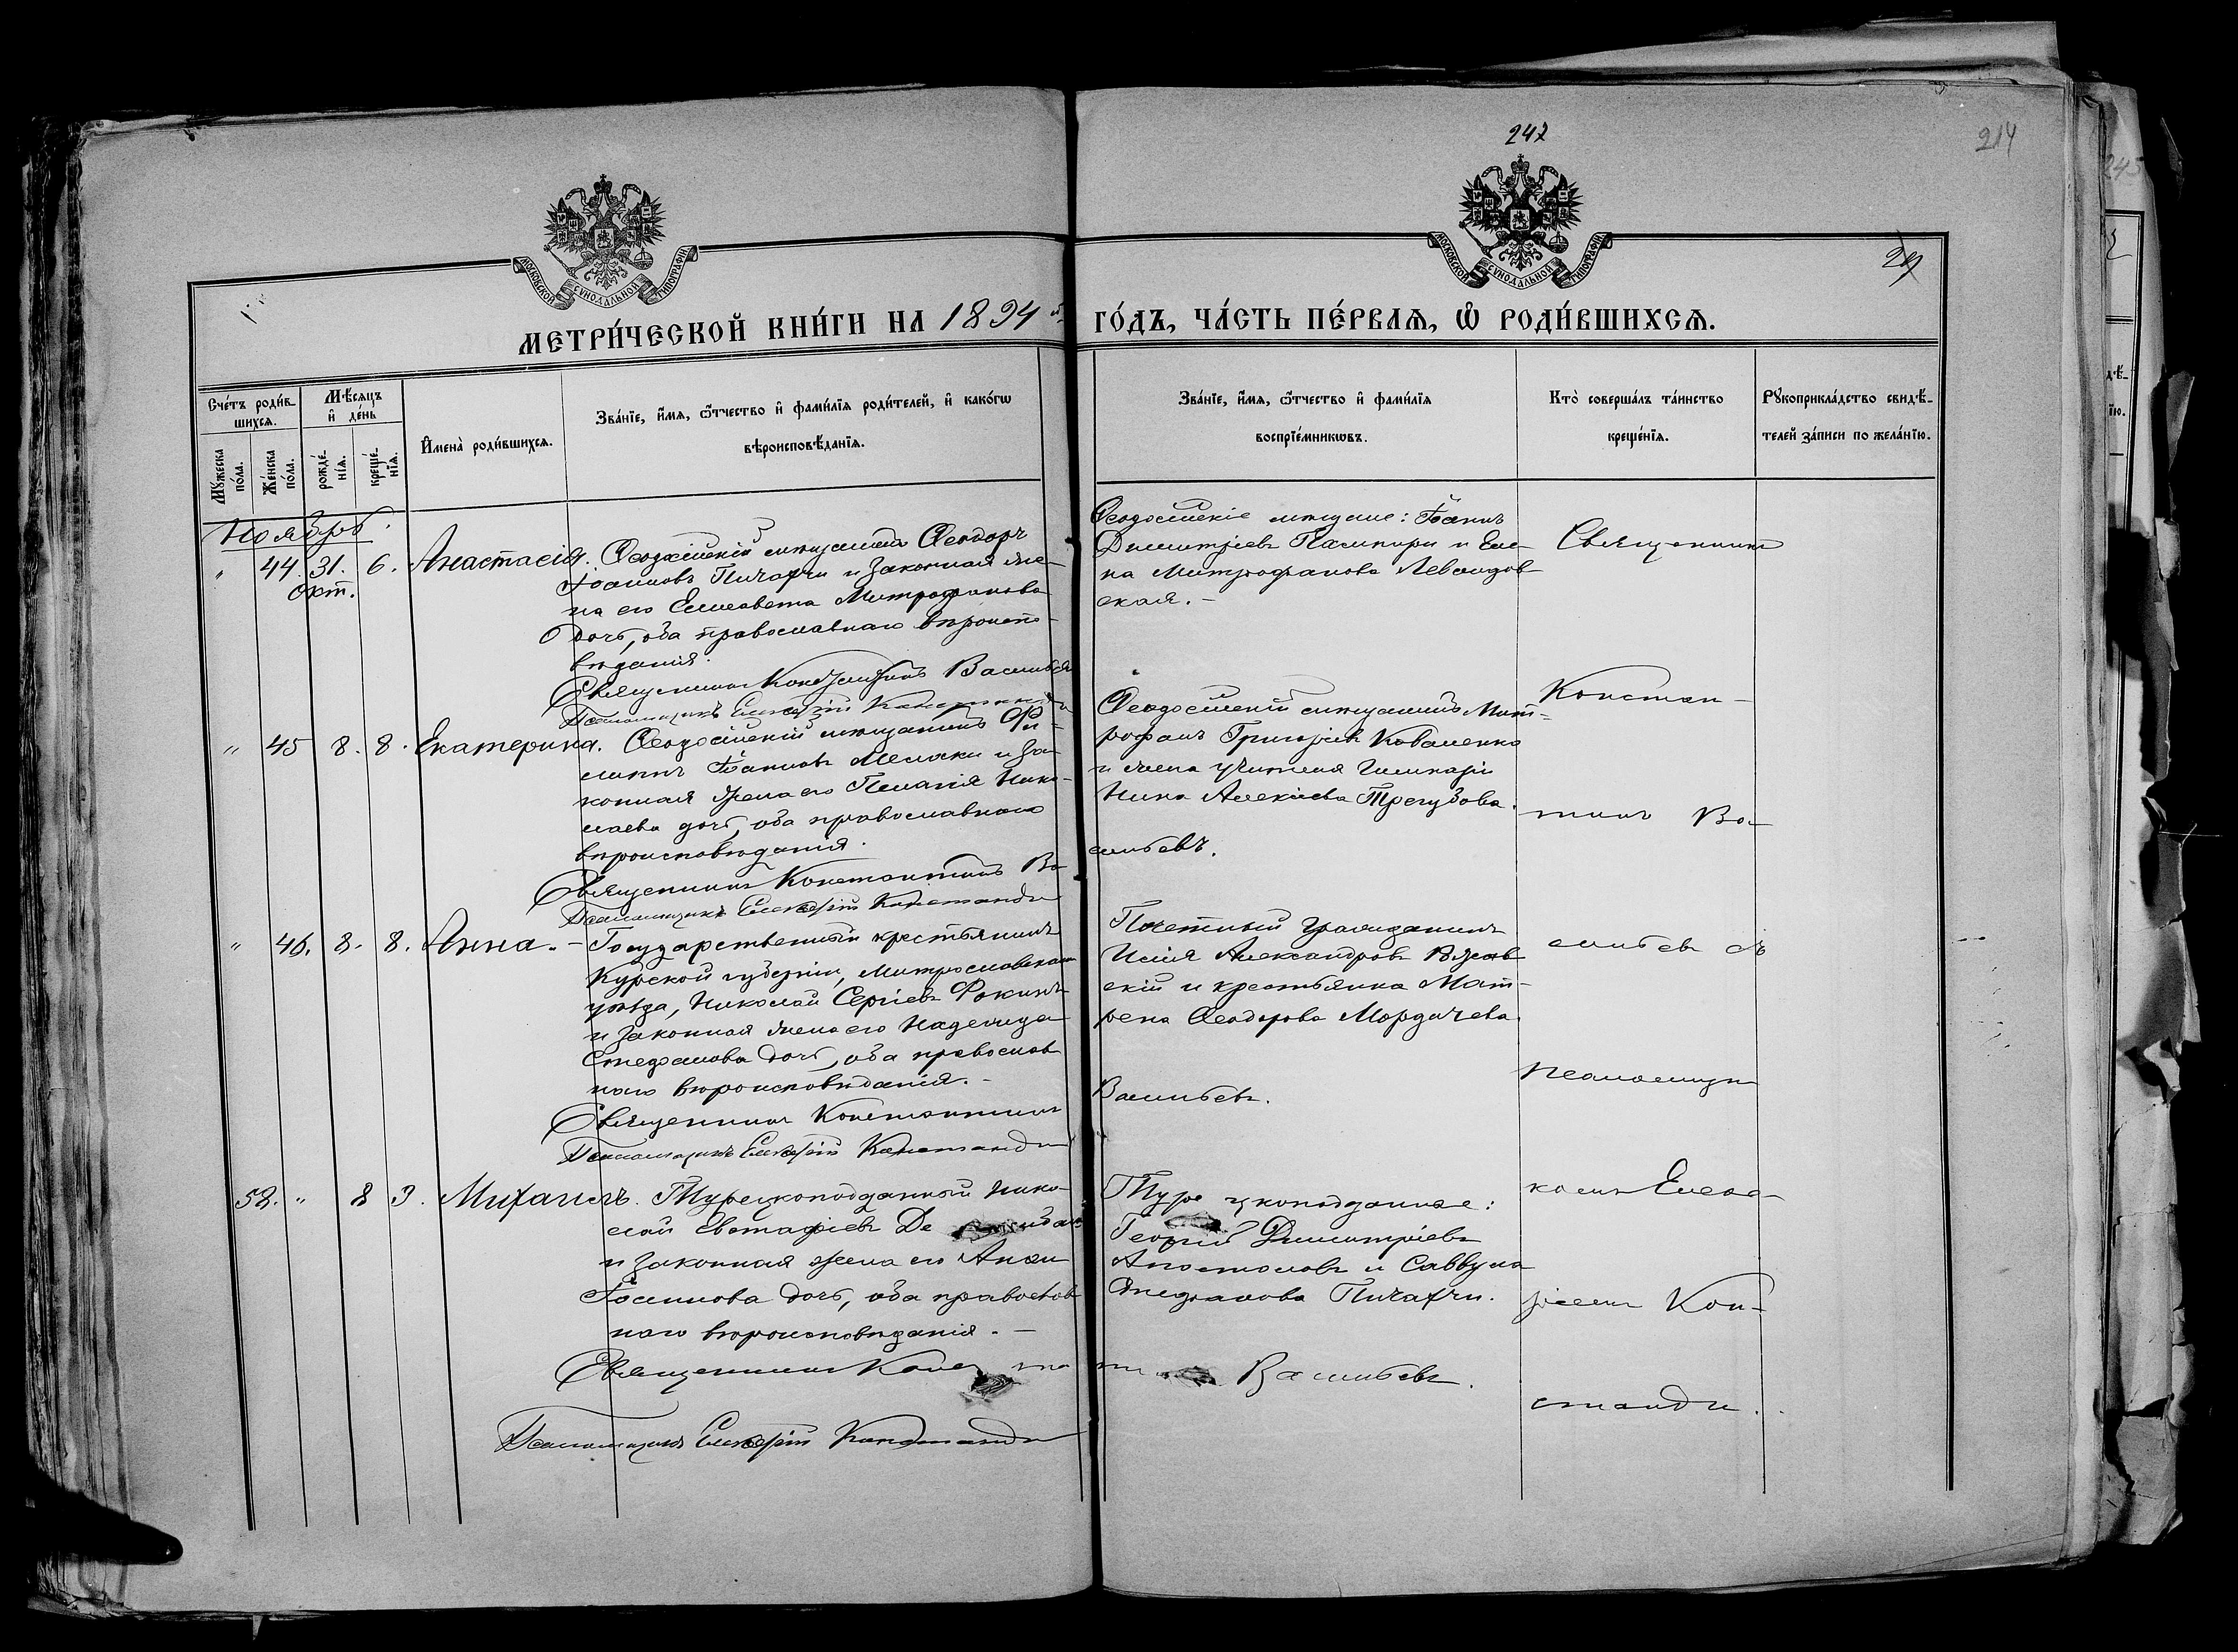 242
214
МОСКОВСКОЙ СѴНОДАЛЬНОЙ ТИПОГРАФІИ
МОСКОВСКОЙ СѴНОДАЛЬНОЙ ТИПОГРАФІИ
МЕТРИ́ЧЕСКОЙ КНИ́ГИ НА 1894 й
ГО́ДЪ, ЧА́СТЬ ПЕ́РВАѦ, Ѽ РОДИ́ВШИХСѦ.
Сче́тъ роди́в-
шихсѧ.
Мѣ́сѧцъ
и҆ де́нь
Мꙋ́жеска
по́ла.
Же́нска
по́ла.
рожде́-
нїѧ.
креще́-
нїѧ.
И҆мена̀ роди́вшихсѧ.
Зва́нїе, и҆́мѧ, ѻ҆́тчество и҆ фами́лїѧ роди́телей, и҆ како́гѡ
вѣроисповѣ́данїѧ.
Зва́нїе, и҆́мѧ, ѻ҆́тчество и҆ фами́лїѧ
воспрїе́мникѡвъ.
Кто̀ соверша́лъ та́инство
креще́нїѧ.
Рꙋкоприкла́дство свидѣ́-
телей за́писи по жела́нїю.
Ноябрь.
" 44. 31. 6. Анастасія. Ѳеодосійскій мѣщанинъ Ѳеодоръ
Окт.
Іоанновъ Пичахчи и законная же-
на его Елисавета Митрофанова
дочь, оба православнаго вѣроиспо-
вѣданія.
Священникъ Константинъ Васильевъ
Псаломщикъ Елевѳерій Константи
Ѳеодосійскіе мѣщане: Іоаннъ
Димитріевъ и Еле-
на Митрофанова Левандов-
ская. -
" 45 8. 8. Екатерина. Ѳеодосійскій мѣщанинъ Фи-
липпъ Іоанновъ и за-
конная жена его Пелагія Нико-
лаева дочь, оба православнаго
вѣроисповѣданія.
Священникъ Константинъ Ва-
сильевъ.
Псаломщикъ Елевѳерій Константи
Ѳеодосійскій мѣщанинъ Мит-
рофанъ Григорьевъ Коваленко
и жена учителя гимназіи
Нина Алексѣева Трегубова.
" 46. 8. 8. Анна. - Государственный крестьянинъ
Курской губерніи,
уѣзда, Николай Сергіевъ Фокинъ
и законная жена его Надежда
Стефанова дочь, оба православ
наго вѣроисповѣданія. -
Священникъ Константинъ
Васильевъ.
Псаломщикъ Елевѳерій Константи
Почетный гражданинъ
Александровъ
скій и крестьянка Мат-
рена Ѳеодорова Мордачева.
58. " 8 9. Михаилъ. Турецкоподданный Нико-
лай Евстафіевъ Де
и законная жена его Анна
Іоаннова дочь, оба православ
наго вѣроисповѣданія. -
Священникъ Константинъ Васильевъ.
Псаломщикъ Елевѳерій Константи
Турецкоподданные:
Георгій Димитріевъ
Апостоловъ и
Стефанова Пичахчи.
Священникъ
Констан-
тинъ Ва-
сильевъ съ
псаломщи
комъ Елев-
ѳеріемъ Кон-
станди.